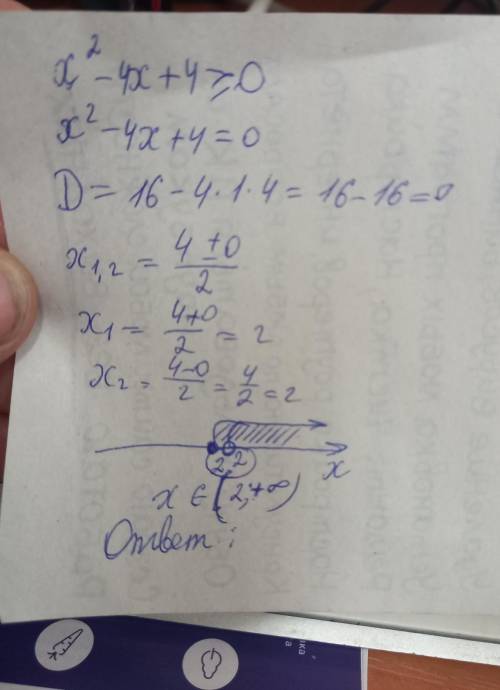 x² - 4x + 4 ≥ 0
x² - 4x + 4 = 0
D = 16 - 4·1·4 = 16 - 16 = 0
x₁,₂ = (4 ± 0)/2
x₁ = (4+0)/2 = 2
x₂ = (4-0)/2 = 4/2 = 2
2 2 x
x ∈ [2, +∞)
Ответ: